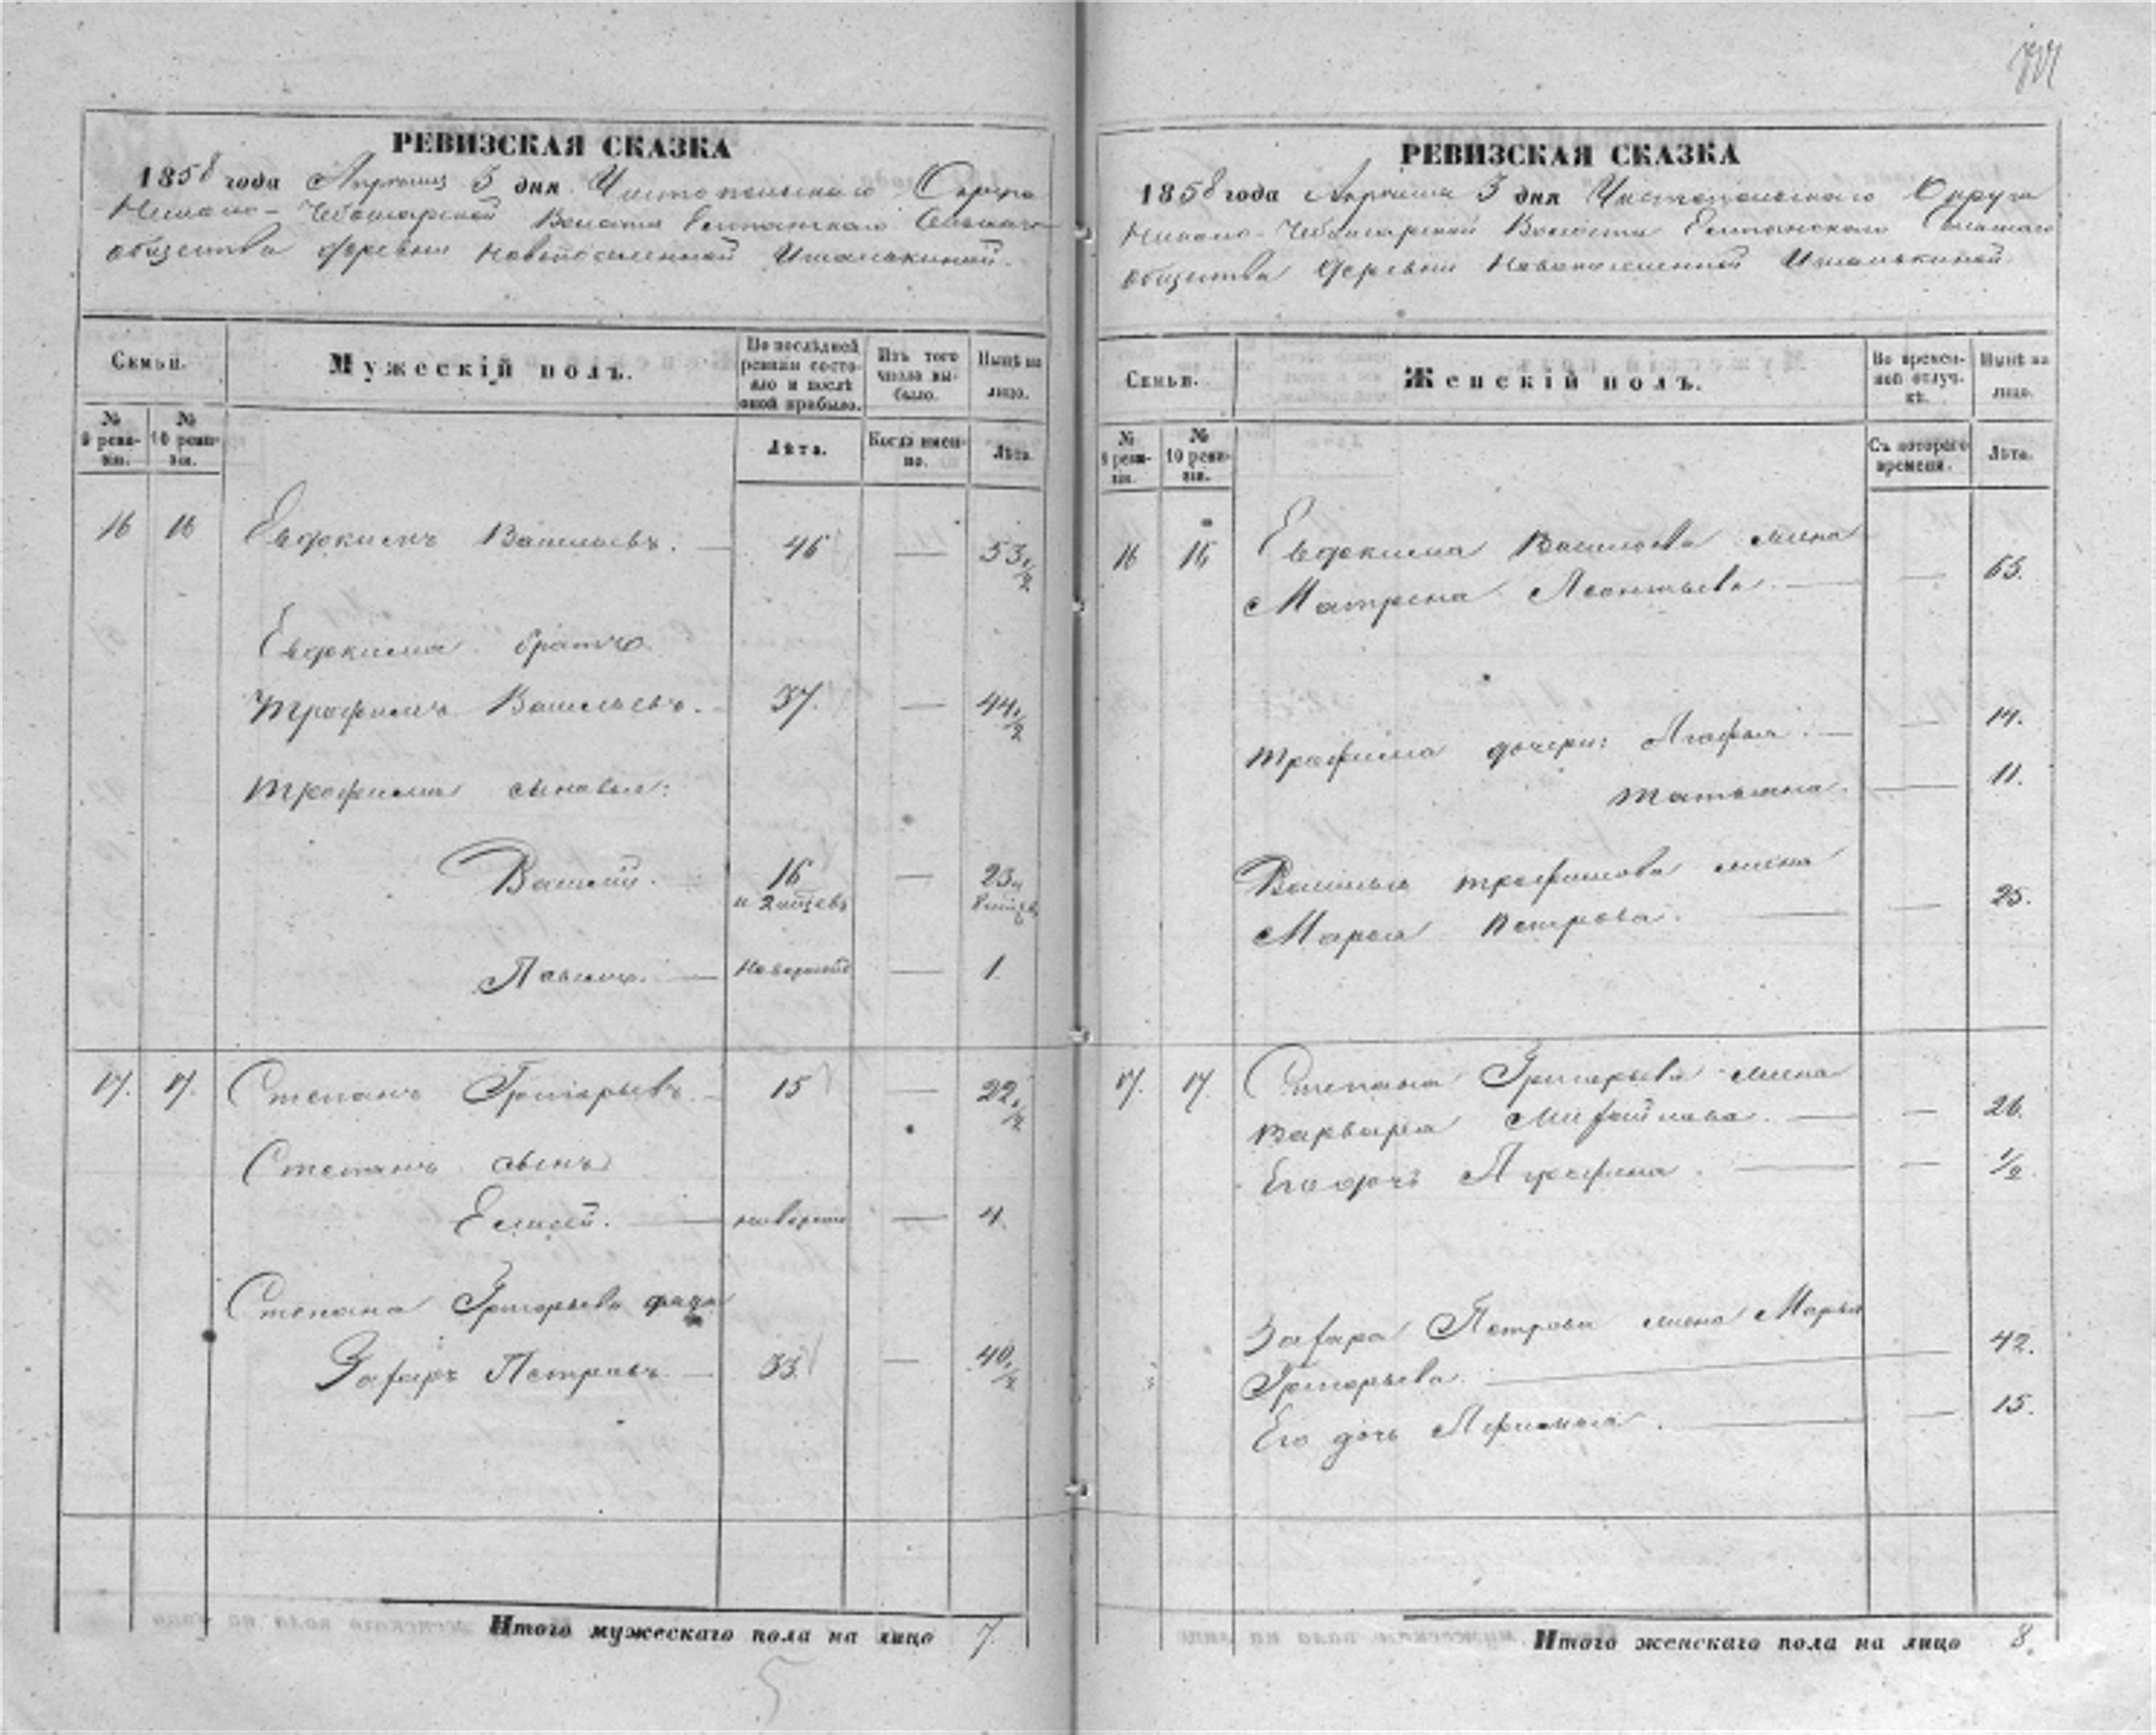 РЕВИЗСКАЯ СКАЗКА
1858 года Апреля 3 дня Чистопольскаго Округа
Чебоксарской Волости Сельскаго
общества деревни Новопоселенной Ишалькиной.
Семьи.
Мужескій полъ.
По послѣдней ревизіи состояло и послѣ оной прибыло.
Изъ того числа выбыло.
Нынѣ на лицо.
№ 9 ревизіи.
№ 10 ревизіи.
Лѣта.
Когда именно.
Лѣта.
16 16 Евдокимъ Васильевъ. — 46 — 53 1/2
Евдокима братъ
Трофимъ Васильевъ. — 37. — 44 1/2
Трофима сыновья:
Василій. 16 — 23
Павелъ. — новорожд — 1
17. 17. Степанъ Григорьевъ. — 15 — 22 1/2
Степана сынъ
Елисей. — новорожд — 4.
Степана Григорьева
Захаръ Петровъ. — 33 — 40 1/2
Итого мужескаго пола на лицо 7.
РЕВИЗСКАЯ СКАЗКА
1858 года Апреля 3 дня Чистопольскаго Округа
Чебоксарской Волости Сельскаго
общества деревни Новопоселенной Ишалькиной
Семьи.
Женскій полъ.
Во временной отлучкѣ.
Нынѣ на лицо.
№ 9 ревизіи.
№ 10 ревизіи.
Съ котораго времени.
Лѣта.
16 16 Евдокима Васильева жена
Матрена Леонтьева. — — 65.
Трофима дочери: Агафья. — — 14.
Татьяна. — 11.
Василья Трофимова жена
Марья Петрова. — — 25.
17. 17. Степана Григорьева жена
Варвара — — 26.
Его дочь — — 1/2
Захара Петрова жена Марья
Григорьева. — 42.
Его дочь — — 15.
Итого женскаго пола на лицо 8.